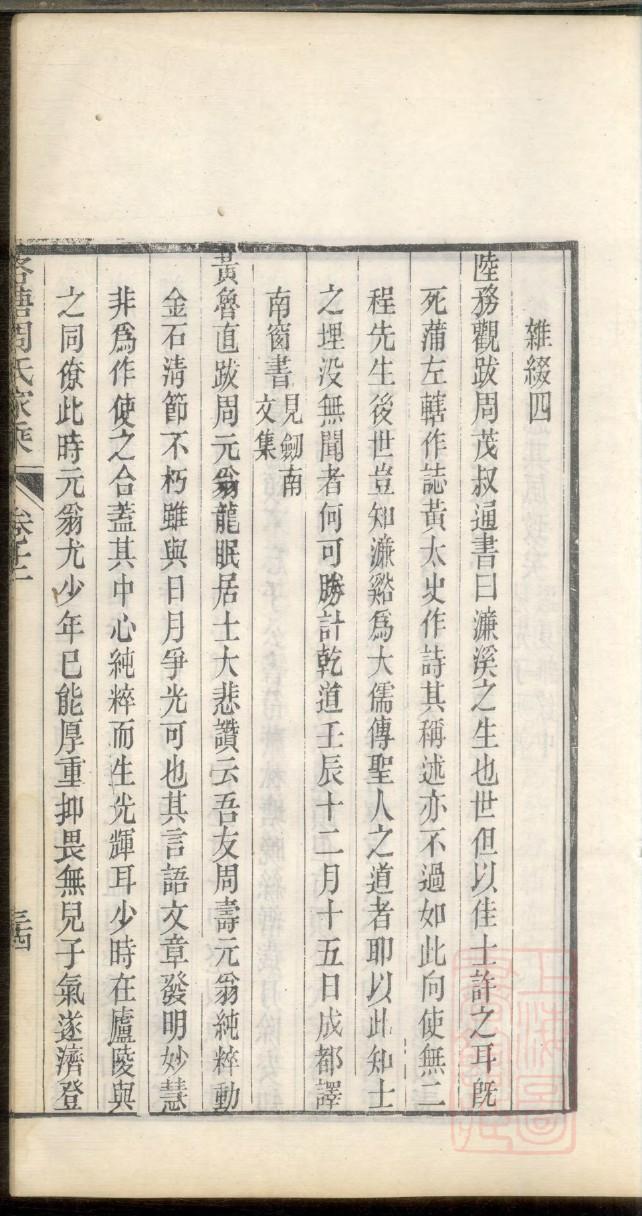 雜綴四
陸務觀跋周茂叔通書曰濂溪之生也世但以佳士許之耳旣
死蒲左轄作誌黃太史作詩其稱述亦不過如此向使無二
程先生後世豈知濂谿爲大儒傳聖人之道者耶以此知士
之埋没無聞者何可勝計乾道壬辰十二月十五日成都譯
南窗書見劒南文集
黃魯直跋周元翁龍眠居士大悲讚云吾友周壽元翁純粹動
金石清節不朽雖與日月爭光可也其言語文章發明妙慧
非爲作使之合蓋其中心純粹而生光輝耳少時在廬陵與
之同僚此時元翁尤少年已能厚重抑畏無兒子氣遂濟登
周氏家乘
三四